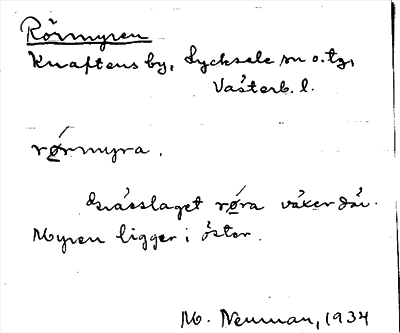 Rörmyren
Knaftens by, Lycksele sn o. tg,
Västerb. l.
rǿrmyra.
Grässlaget røra växer där.
Myren ligger i öster.
M. Neuman, 1934